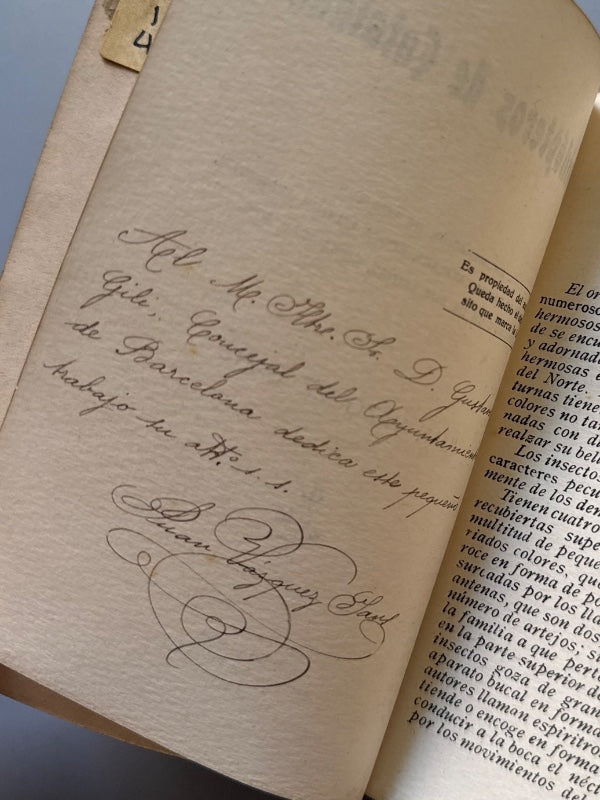 1
4
de Cata
Es propiedad del
Queda hecho el
sito que marca la
Al M. Iltre. Sr. D. Gustavo
Gili, Concejal del Ayuntamiento
de Barcelona dedica este pequeño
trabajo su att. s. s.
Juan Vázquez Sans
El or
numeroso
hermosos
de se encu
y adornado
hermosas e
del Norte.
turnas tiene
colores no tan
nadas con di
realzar su bell
Los insectos
caracteres pecu
mente de los den
Tienen cuatro
recubiertas supe
multitud de peque
riados colores, que
roce en forma de po
surcadas por los lla
antenas, que son dos
número de artejos; si
la familia a que perte
en la parte superior de
insectos goza de gran
aparato bucal en forma
autores llaman espiritro
tiende o encoge en forma
conducir a la boca el néct
por los movimientos del